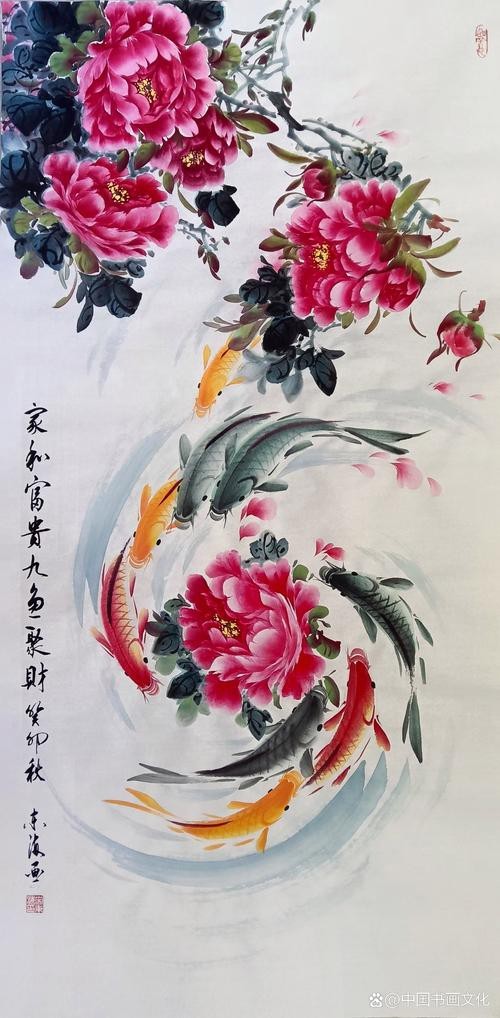 家和富贵九鱼聚财 癸卯秋 东海画
@中国书画文化